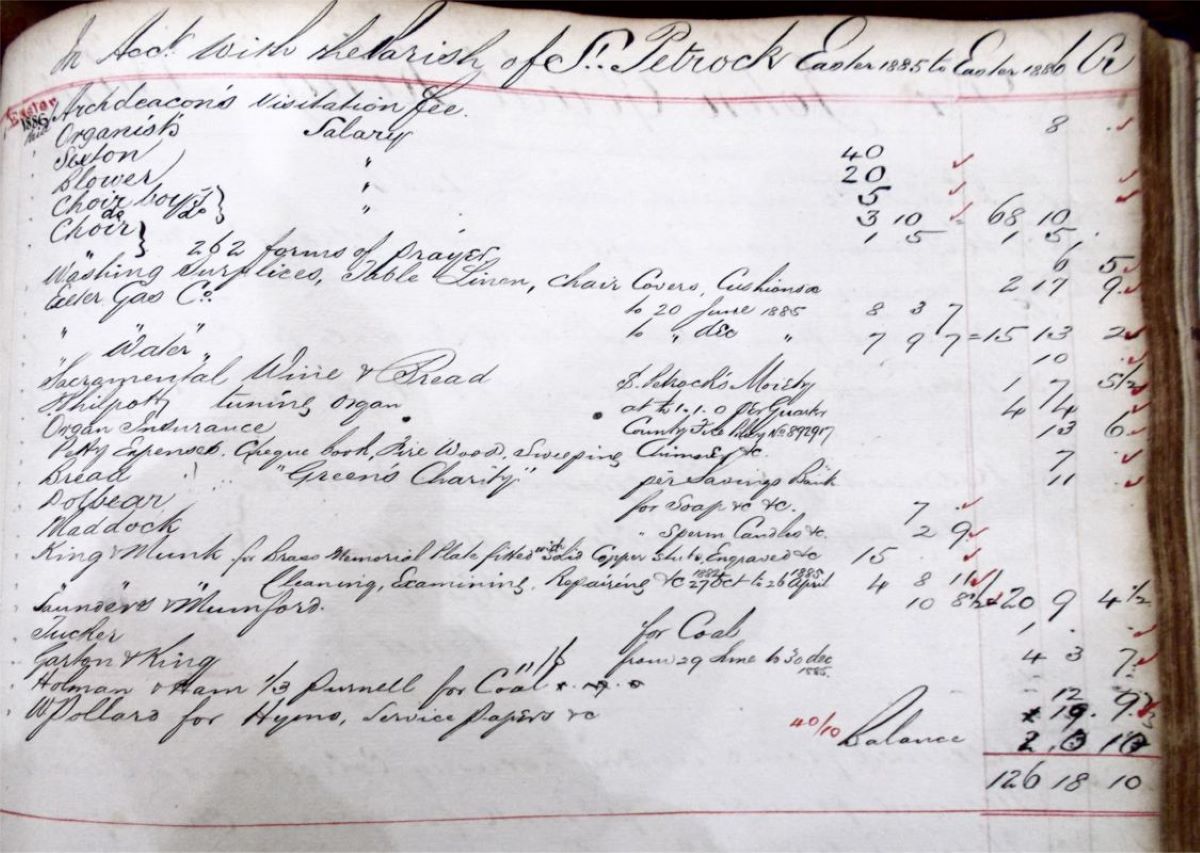 In Acct. with the Parish of St. Petrock Easter 1885 to Easter 1886 Cr
Easter 1885 Archdeacon's Visitation fee. 8 .
Organist's Salary 40
Sexton " 20
Blower " 5
Choir boys " 3 10 68 10 .
Choir do do 1 5 1 5 .
262 forms of prayer 6 5
Washing Surplices, Table Linen, Chair Covers, Cushions &c 2 17 9
Exeter Gas Co. to 20 June 1885 8 3 7
" " to " dec " 7 9 7 = 15 13 2
" Water " 10 .
Sacramental Wine & Bread St. Petrock's Moiety 1 7 5½
Philpotts tuning Organ at 1.1.0 per Quarter 4 4 .
Organ Insurance County Fire Policy No 892917 13 6
Petty Expenses. Cheque book, Fire Wood, Sweeping Chimney &c. 7 .
Bread "Green's Charity" per Savings Bank 11 .
Dolbear for Soap &c &c. 7 .
Maddock " Sperm Candles &c. 2 9
King & Munk for Brass Memorial Plate fitted with Solid Copper Studs, Engraved &c 15 .
" " " Cleaning, Examining, Repairing &c 27 Oct 1884 to 26 April 1885 4 8 11
Saunders & Mumford. 10 8½ 20 9 4½
Tucker for Coal 1 . .
Garton & King from 29 June to 30 dec 1885. 4 3 7
Holman & Ham 1/3 Purnell for Coal 11/6 12 9
W Pollard for Hymn, Service Papers &c 19 9½
40/10 Balance 2 10
126 18 10